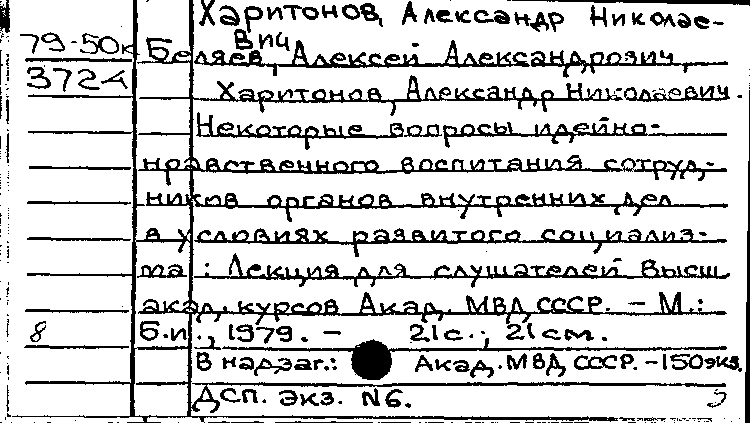 Харитонов, Александр Николае-
вич
79-50к Беляев, Алексей Александрович,
3724 Харитонов, Александр Николаевич.
Некоторые вопросы идейно-
нравственного воспитания сотруд-
ников органов внутренних дел
в условиях развитого социализ-
ма : Лекция для слушателей Высш
акад. курсов Акад. МВД СССР. - М.:
8 Б.и., 1979. - 21с.; 21см.
В надзаг.: Акад. МВД СССР. - 150экз.
ДСП. экз. N6.